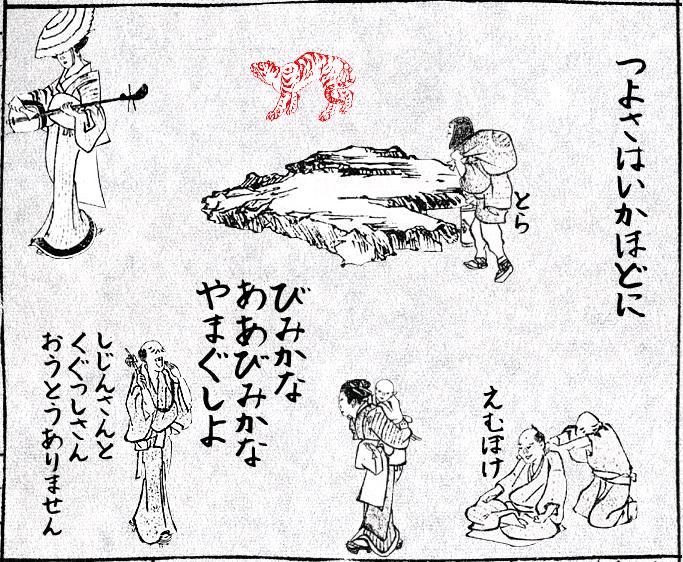 つよさはいかほどに
とら
えむぼけ
びみかな
ああびみかな
やまぐしよ
しじんさんと
くぐっしさん
おうとうありません